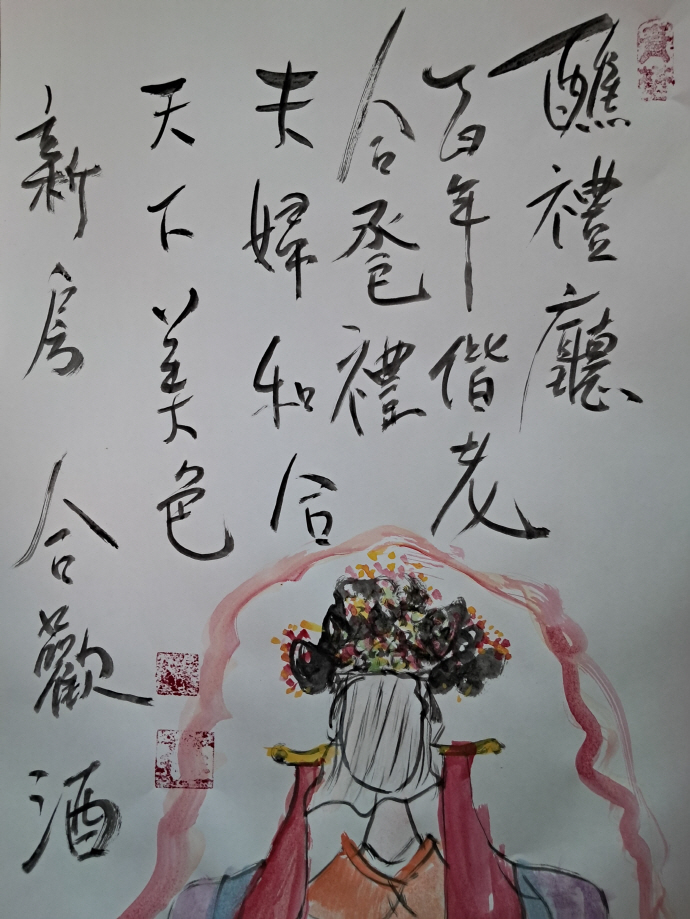 醮禮廳
百年偕老
合巹禮
夫婦和合
天下美色
新房合歡酒